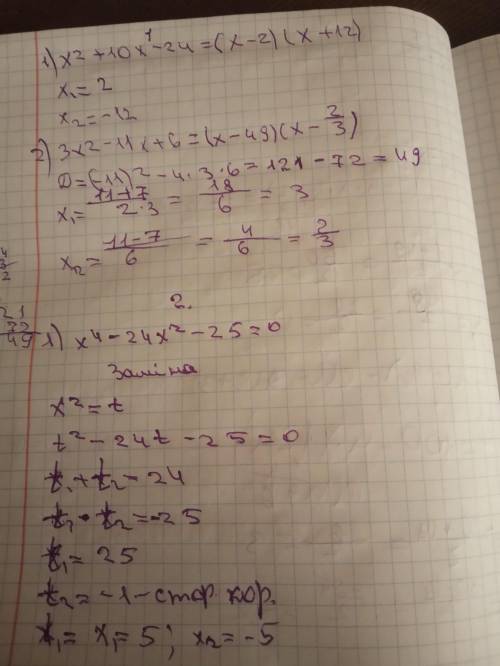 1) x² + 10x - 24 = (x - 2)(x + 12)
x₁ = 2
x₂ = -12
2) 3x² - 11x + 6 = (x - 49)(x - 2/3)
D = (11)² - 4 · 3 · 6 = 121 - 72 = 49
x₁ = 11+7/2·3 = 18/6 = 3
x₂ = 11-7/6 = 4/6 = 2/3
2.
1) x⁴ - 24x² - 25 = 0
Заміна
x² = t
t² - 24t - 25 = 0
t₁ + t₂ = 24
t₁ · t₂ = -25
t₁ = 25
t₂ = -1 - стор. кор.
x₁ = 5; x₂ = -5